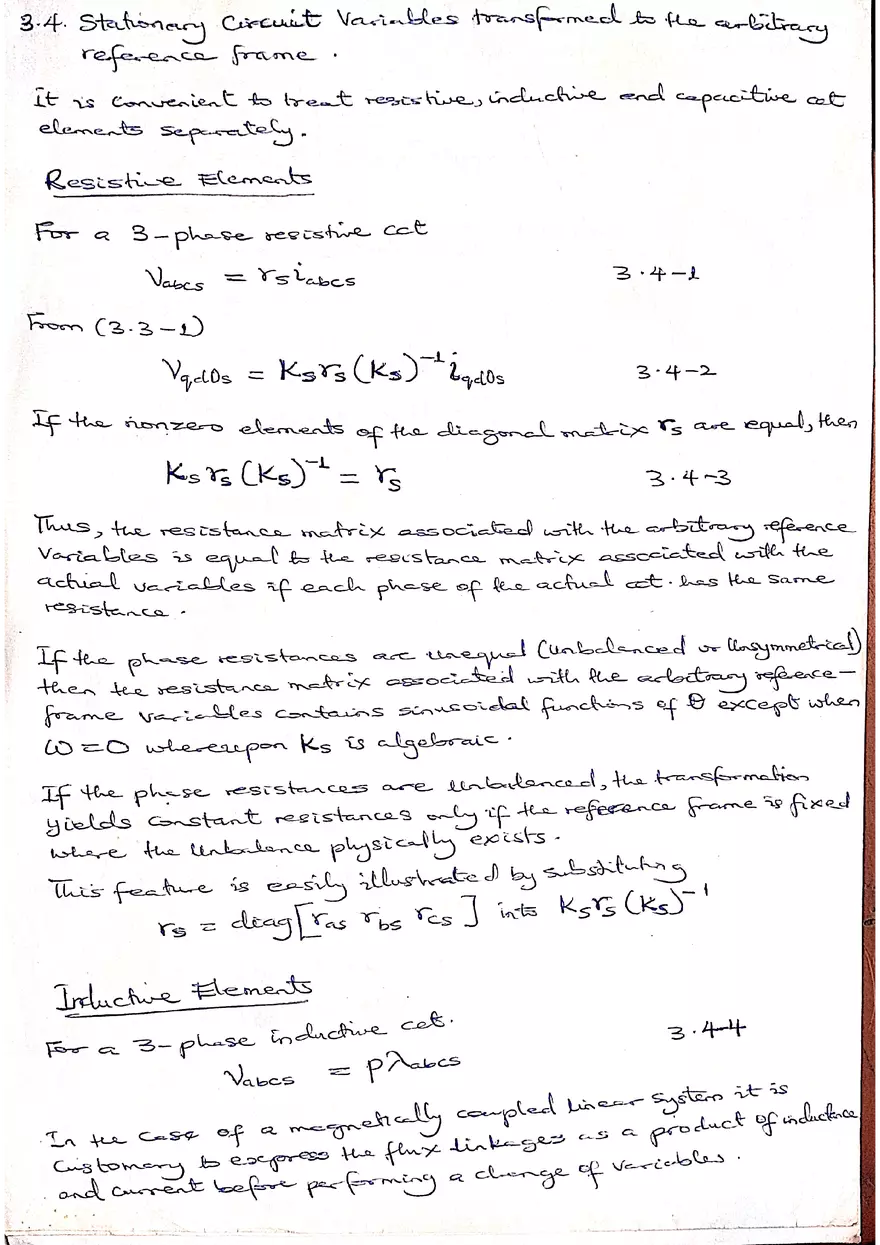 3.4. Stationary Circuit Variables transformed to the arbitrary
reference frame.
it is convenient to treat resistive, inductive and capacitive cct
elements separately.
Resistive Elements
For a 3-phase resistive cct
Vabcs = rs iabcs 3.4-1
From (3.3-1)
Vqd0s = Ks rs (Ks)⁻¹ iqd0s 3.4-2
If the nonzero elements of the diagonal matrix rs are equal, then
Ks rs (Ks)⁻¹ = rs 3.4-3
Thus, the resistance matrix associated with the arbitrary reference
Variables is equal to the resistance matrix associated with the
actual variables if each phase of the actual cct. has the same
resistance.
If the phase resistances are unequal (unbalanced or Unsymmetrical)
then the resistance matrix associated with the arbitrary reference-
frame variables contains sinusoidal functions of θ except when
ω=0 whereupon Ks is algebraic.
If the phase resistances are unbalanced, the transformation
yields constant resistances only if the reference frame is fixed
where the unbalance physically exists.
This feature is easily illustrated by substituting
rs = diag[ras rbs rcs] into Ks rs (Ks)⁻¹
Inductive Elements
For a 3-phase inductive cct. 3.4-4
Vabcs = pλabcs
In the case of a magnetically coupled linear system it is
Customary to express the flux linkages as a product of inductance
and current before performing a change of variables.